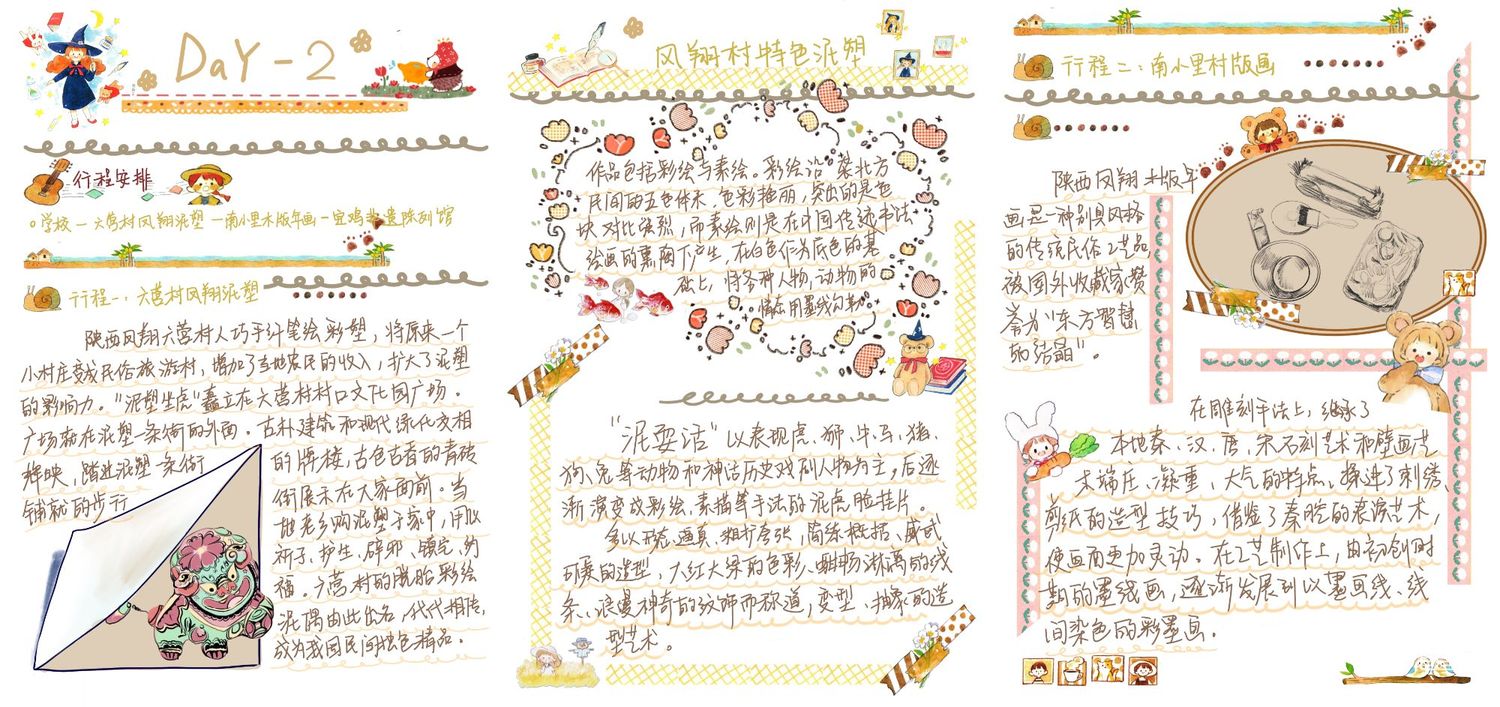 DaY-2
行程安排
学校一六营村凤翔泥塑一南小里木版年画一宝鸡非遗陈列馆
行程一：六营村凤翔泥塑
陕西凤翔六营村人巧手纤笔绘彩塑，将原来一个
小村庄变成民俗旅游村，增加了当地农民的收入，扩大了泥塑
的影响力。"泥塑坐虎"矗立在六营村村口文化园广场。
广场就在泥塑一条街的外面。古朴建筑和现代绿化交相
辉映，踏进泥塑一条街
的牌楼，古色古香的青砖
铺就的步行
街展示在大家面前。当
地老乡购泥塑于家中，用以
祈子、护生、辟邪、镇宅、纳
福。六营村的脱胎彩绘
泥偶由此出名，代代相传，
成为我国民间独色精品。
凤翔村特色泥塑
作品包括彩绘与素绘。彩绘沿袭北方
民间的五色体系，色彩艳丽，突出的是色
块对比强烈，而素绘则是在中国传统书法
绘画的熏陶下产生，在白色作为底色的基
础上，将各种人物，动物的
情态用墨线勾勒。
"泥耍活"以表现虎、狮、牛、马、猪、
狗、兔等动物和神话历史戏剧人物为主，后逐
渐演变成彩绘、素描等手法的泥虎脸挂片。
多以形态逼真、粗犷夸张，简练概括、威武
可爱的造型，大红大绿的色彩、酣畅淋漓的线
条、浪漫神奇的纹饰而称道，变型、抽象的造
型艺术。
行程二：南小里村版画
陕西凤翔木版年
画是一种别具风格
的传统民俗工艺品
被国外收藏家赞
誉为"东方智慧
的结晶"。
在雕刻手法上，继承了
本地秦、汉、唐、宋石刻艺术和壁画艺
术端庄、凝重、大气的特点，揉进了刺绣、
剪纸的造型技巧，借鉴了秦腔的表演艺术，
使画面更加灵动。在工艺制作上，由初创时
期的墨线画，逐渐发展到以墨画线、线
间染色的彩墨画。